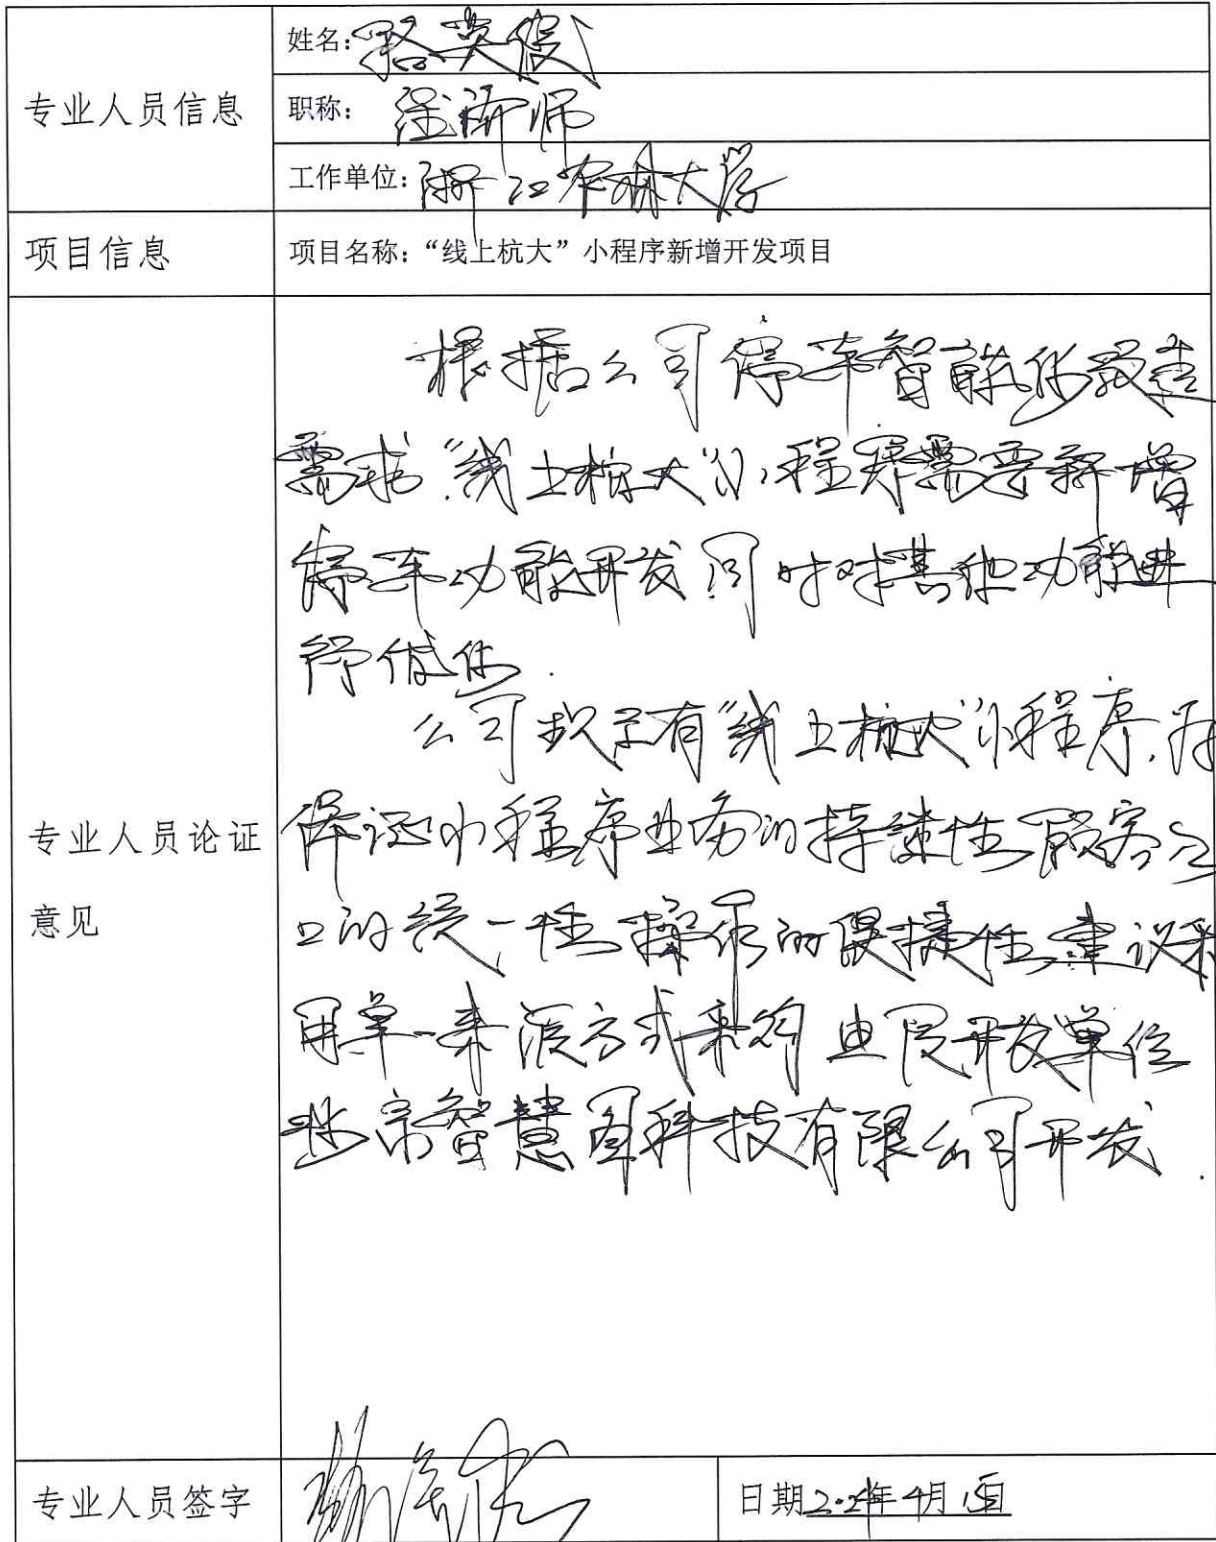 专业人员信息
姓名：骆英俊
职称：经济师
工作单位：浙江农林大学
项目信息
项目名称：“线上杭大”小程序新增开发项目
专业人员论证
意见
根据公司停车智能化改造
需求“线上杭大”小程序需要新增
停车功能开发同时对其他功能进
行优化.
公司现有“线上杭大”小程序.为
保证小程序业务的持续性顾客入
口的统一性操作的便捷性建议采
用单一来源方式采购由原开发单位
北京智慧图科技有限公司开发.
专业人员签字
日期2024年4月15日